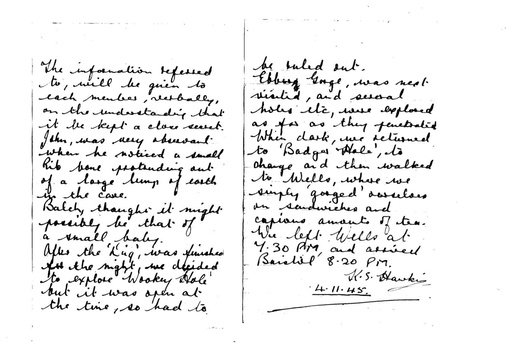 The information referred
to, will be given to
each member, verbally,
on the understanding that
it be kept a close secret.
John, was very observant
when he noticed a small
Rib bone protruding out
of a large lump of earth
in the cave.
Balch thought it might
possibly be that of
a small baby.
After the 'Dig', was finished
for the night, we decided
to explore 'Wookey Hole'
but it was open at
the time, so had to
be ruled out.
Ebbor Gorge, was next
visited, and several
holes etc, were explored
as far as they penetrated
When dark, we returned
to 'Badger Hole', to
change and then walked
to Wells, where we
simply 'gorged' ourselves
on sandwiches and
copious amounts of tea.
We left Wells at
7.30 PM, and arrived
Bristol 8.20 PM.
K.S. Hawkins
4.11.45.